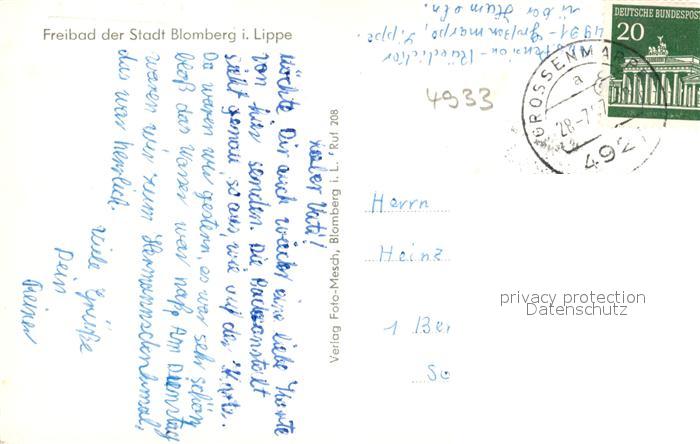 Freibad der Stadt Blomberg i. Lippe
Lieber Vati!
Möchte Dir auch wieder eine liebe Karte
von hier senden. Die Badeanstalt
sieht genau so aus, wie auf der Karte.
Da waren wir gestern, es war sehr schön
bloß das Wasser war naß. Am Dienstag
waren wir zum Hermannsdenkmal,
das war herrlich.
Viele Grüße
Dein
Reiner
Verlag Foto-Mesch, Blomberg i. L. Ruf 208
4931-Großenmarpe, Lippe
über Hameln.
4933
DEUTSCHE BUNDESPOST
20
GROSSENMARPE
a
28.-7.
492
Herrn
Heinz
1 Ber
So
privacy protection
Datenschutz